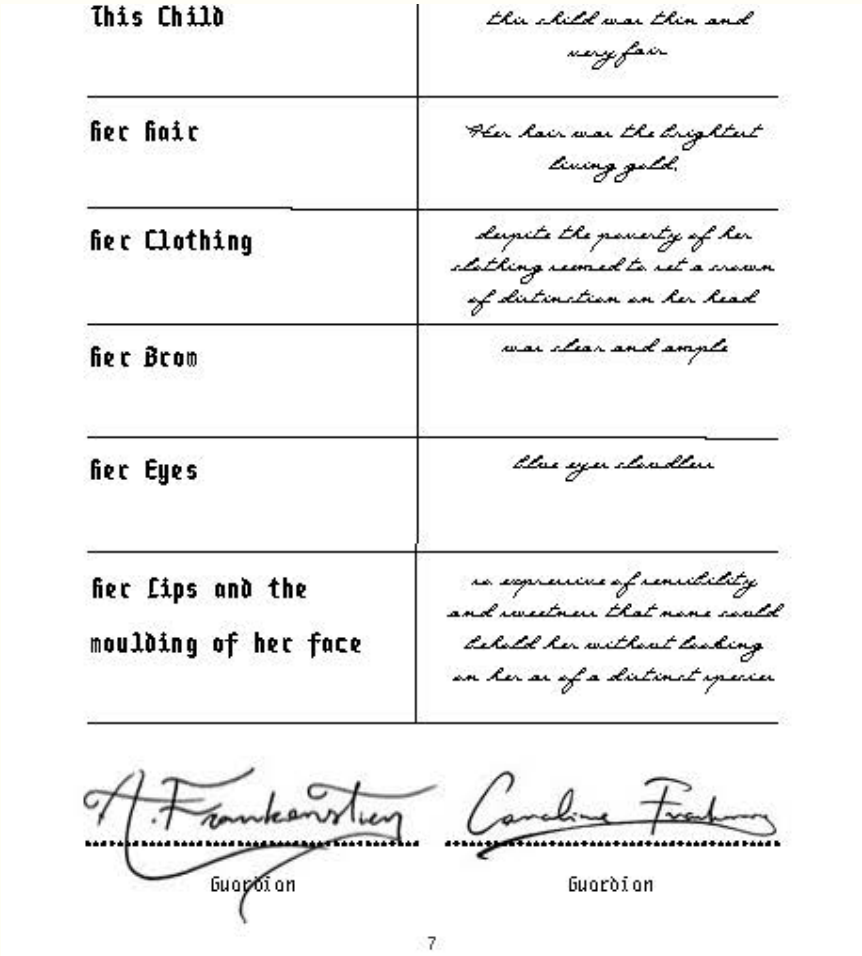 This Child
this child was thin and
very fair
Her Hair
Her hair was the brightest
living gold,
Her Clothing
despite the poverty of her
clothing seemed to set a crown
of distinction on her head
Her Brow
was clear and ample
Her Eyes
blue eyes cloudless
Her Lips and the
moulding of her face
so expressive of sensibility
and sweetness that none could
behold her without looking
on her as of a distinct species
A. Frankenstien
Caroline
Guardian
Guardian
7